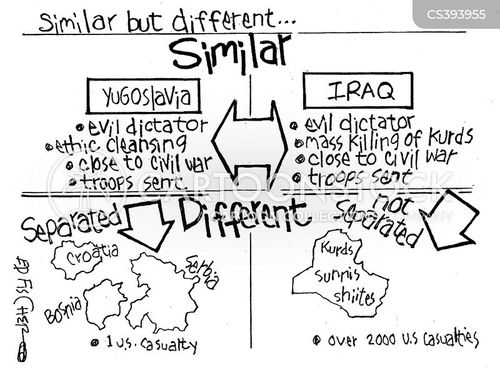 CS393955
Similar but different...
Similar
YUGOSlaVia
evil dictator
ethic cleansing
close to civil war
troops sent
IRAQ
evil dictator
mass killing of kurds
close to civil war
troops sent
Different
Separated
Croatia
Bosnia
Serbia
1 U.S. casualty
not
Separated
Kurds
sunnis
shiites
over 2000 U.S casualties
ED FISCHER